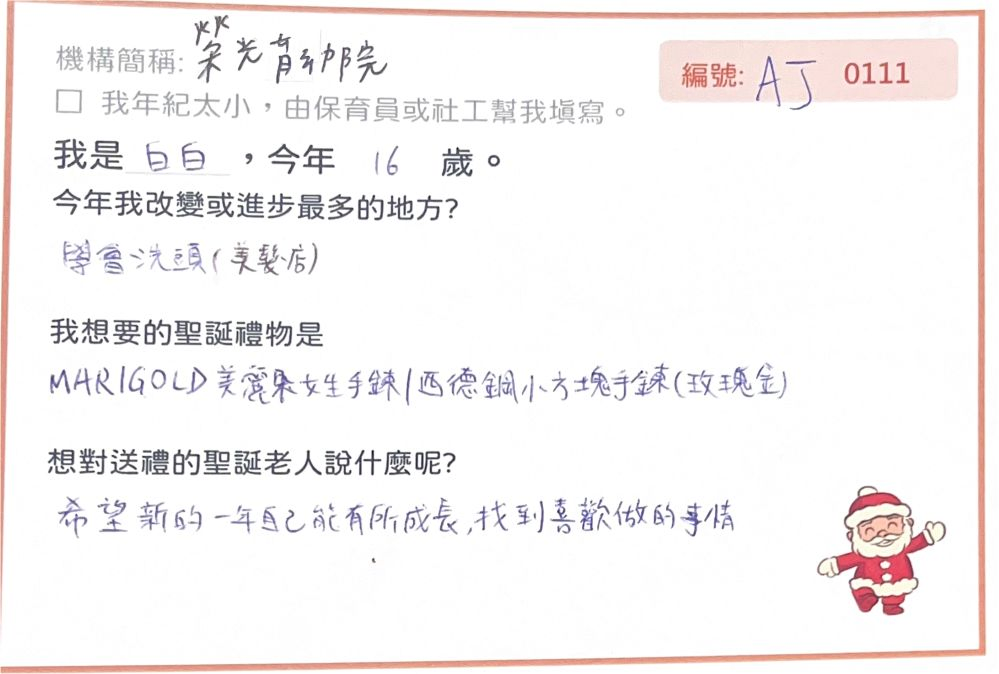 機構簡稱: 榮光育幼院
編號: AJ 0111
☐ 我年紀太小，由保育員或社工幫我填寫。
我是 白白 ，今年 16 歲。
今年我改變或進步最多的地方?
學會洗頭(美髮店)
我想要的聖誕禮物是
MARIGOLD美麗果女生手鍊/西德鋼小方塊手鍊(玫瑰金)
想對送禮的聖誕老人說什麼呢?
希望新的一年自己能有所成長,找到喜歡做的事情